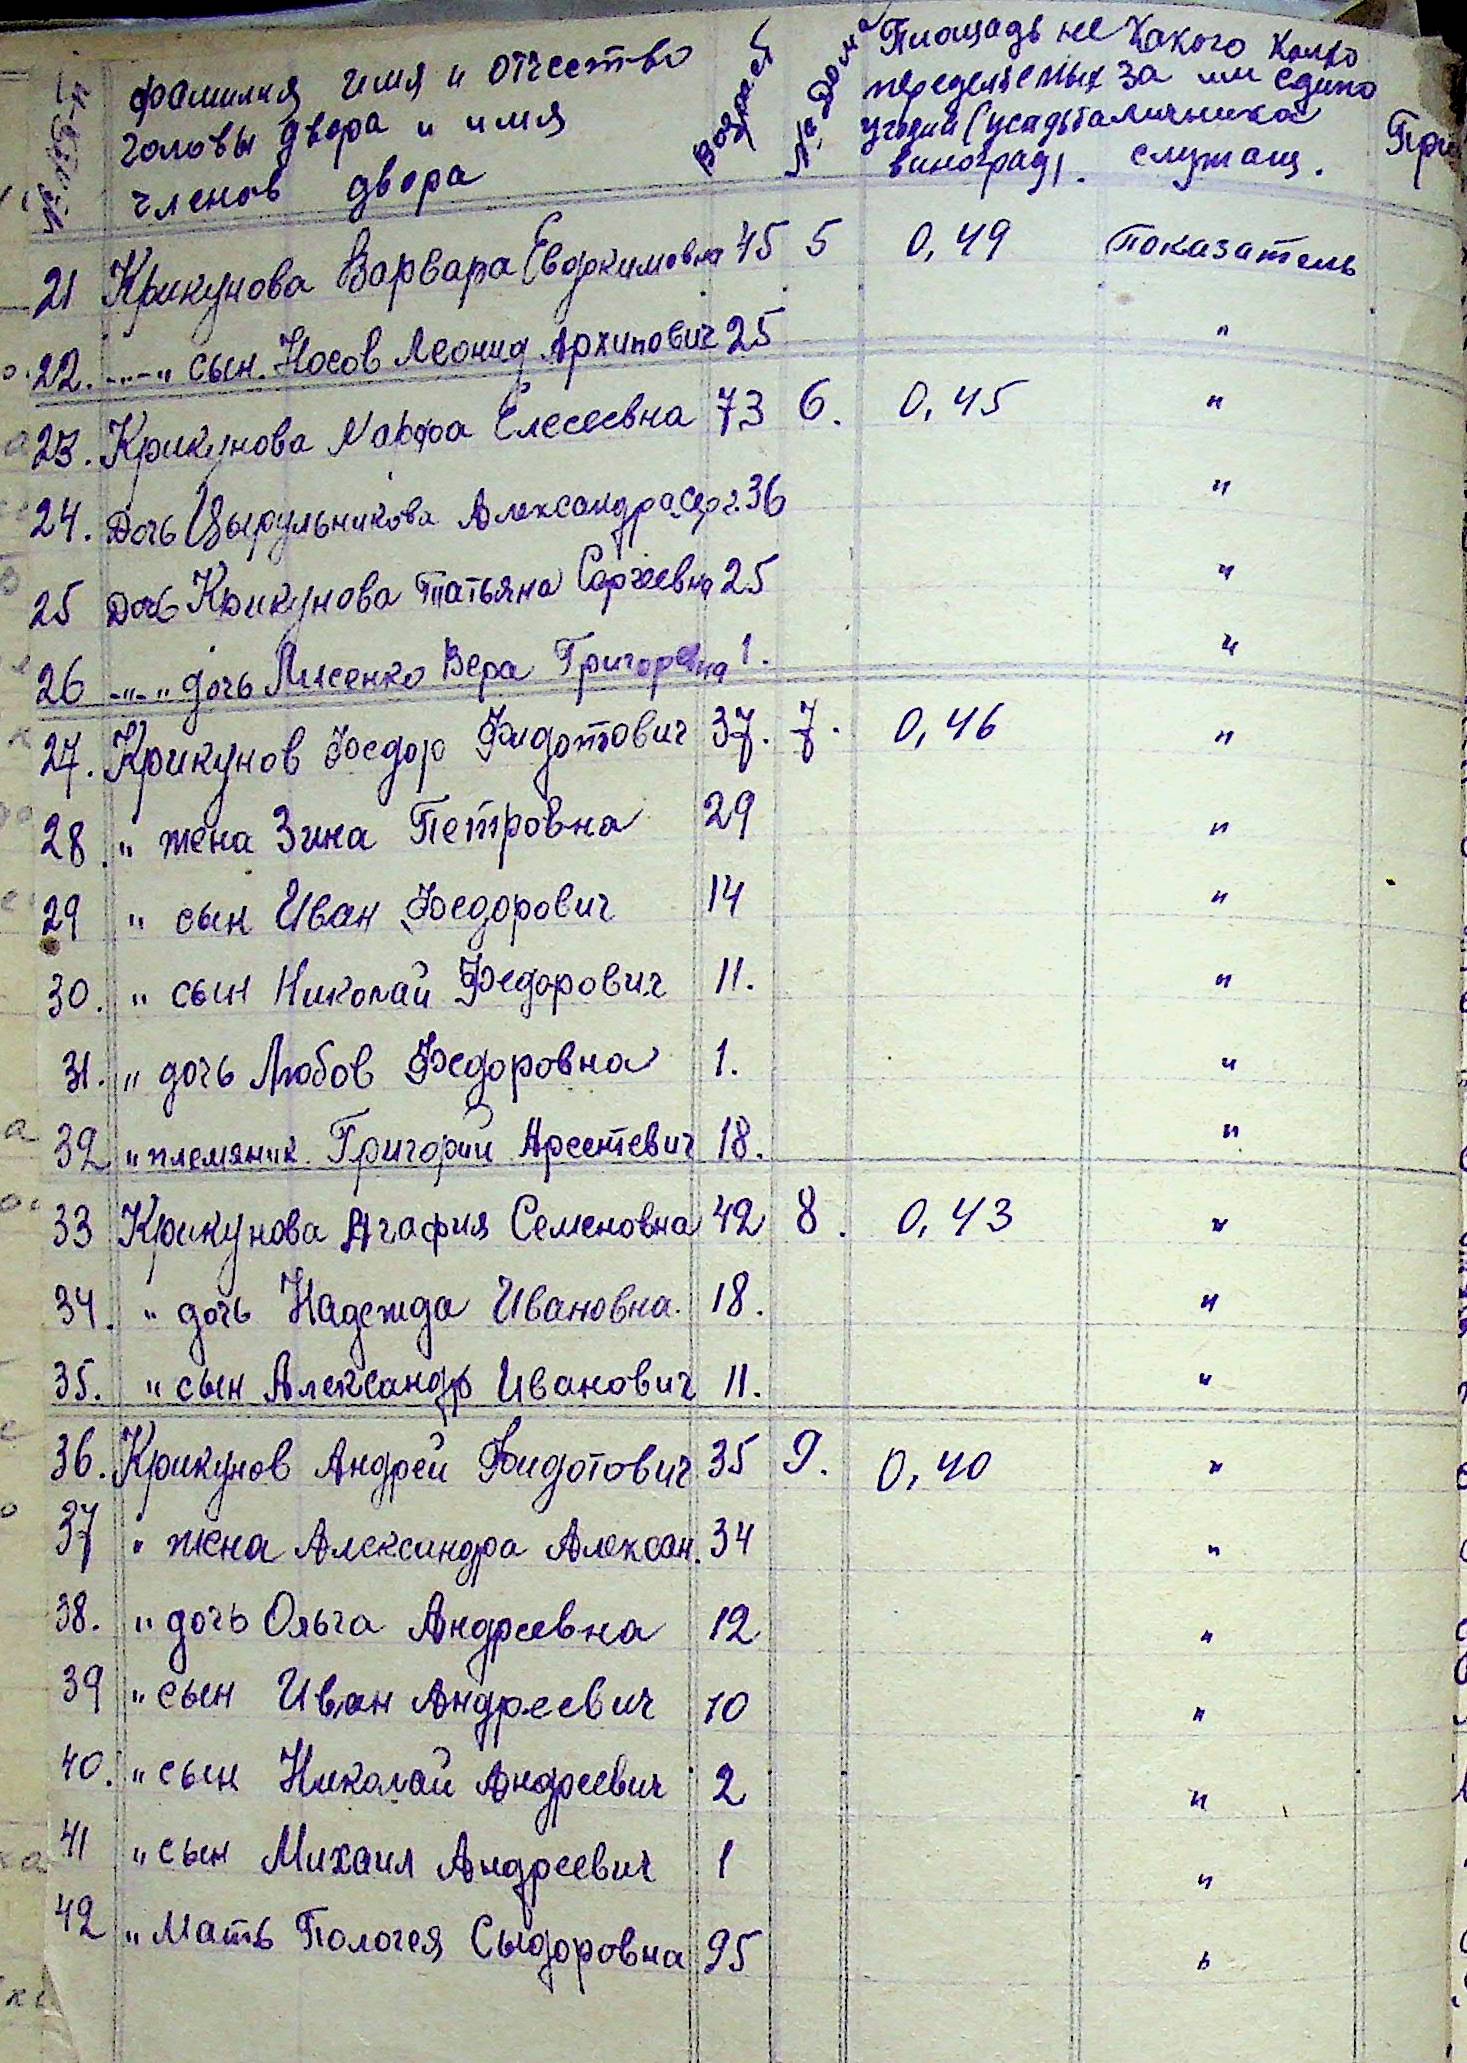 фамилия имя и отчество головы двора и имя членов двора
Возраст
№ дома
Площадь не переделяемых угодий (усадьба виноград).
Какого колхо за или едино личника служащ.
При
21 Крикунова Варвара Евдокимовна 45 5 0,49 Показатель
22. -"-" сын. Носов Леонид Архипович 25 "
23. Крикунова Марфа Елесеевна 73 6. 0,45 "
24. Дочь Цырульникова Александра Серг. 36 "
25 Дочь Крикунова Татьяна Сергеевна 25 "
26 -"-" дочь Лисенко Вера Григоревна 1. "
27. Крикунов Федор Фидотович 37. 7. 0,46 "
28. " жена Зина Петровна 29 "
29 " сын Иван Федорович 14 "
30. " сын Николай Федорович 11. "
31. " дочь Любов Федоровна 1. "
32 " племяник. Григорий Арсентевич 18. "
33 Крикунова Агафия Семеновна 42 8. 0,43 "
34. " дочь Надежда Ивановна. 18. "
35. " сын Александр Иванович 11. "
36. Крикунов Андрей Фидотович 35 9. 0,40 "
37 " жена Александра Алексан. 34 "
38. " дочь Ольга Андреевна 12 "
39 " сын Иван Андреевич 10 "
40. " сын Николай Андреевич 2 "
41 " сын Михаил Андреевич 1 "
42 " Мать Пологея Сыдоровна 95 "